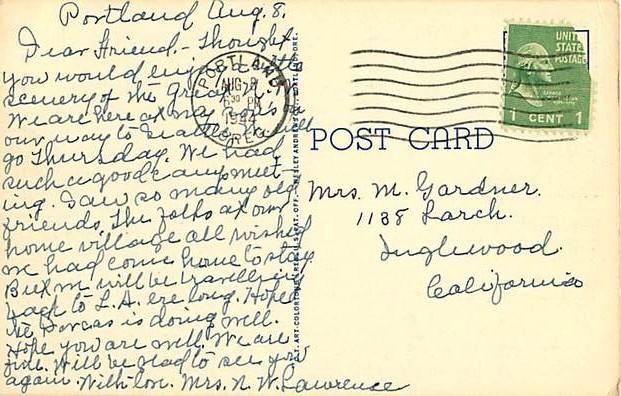 Portland Aug. 8.
Dear Friend. - Thought
you would enjoy the
scenery of the
We are here at
our way to
go Thursday. We had
such a good camp meet-
ing. Saw so many old
friends. The folks at our
home village all wished
we had come home to stay
But m will be travelling
back to L.A. ere long. Hope
the Dorcas is doing well.
Hope you are well. We are
fine. Will be glad to see you
again. With love. Mrs. N. W. Lawrence
PORTLAND
AUG 8
PM
OREG.
UNITED
STATES
POSTAGE
1 CENT 1
POST CARD
Mrs. M. Gardner.
1138 Larch.
Inglewood.
California